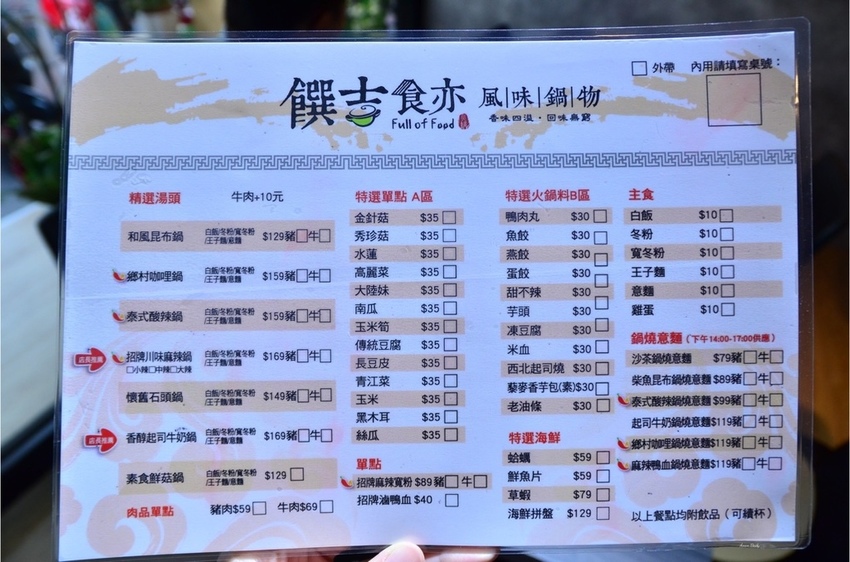 外帶 內用請填寫桌號：
饌吉食亦 風|味|鍋|物
Full of Food 香味四溢·回味無窮
精選湯頭 牛肉+10元
和風昆布鍋 白飯/冬粉/寬冬粉/王子麵/意麵 $129豬 牛
鄉村咖哩鍋 白飯/冬粉/寬冬粉/王子麵/意麵 $159豬 牛
泰式酸辣鍋 白飯/冬粉/寬冬粉/王子麵/意麵 $159豬 牛
店長推薦 招牌川味麻辣鍋 白飯/冬粉/寬冬粉/王子麵/意麵 $169豬 牛
小辣 中辣 大辣
懷舊石頭鍋 白飯/冬粉/寬冬粉/王子麵/意麵 $149豬 牛
店長推薦 香醇起司牛奶鍋 白飯/冬粉/寬冬粉/王子麵/意麵 $169豬 牛
素食鮮菇鍋 白飯/冬粉/寬冬粉/王子麵/意麵 $129
肉品單點 豬肉$59 牛肉$69
特選單點 A區
金針菇 $35
秀珍菇 $35
水蓮 $35
高麗菜 $35
大陸妹 $35
南瓜 $35
玉米筍 $35
傳統豆腐 $35
長豆皮 $35
青江菜 $35
玉米 $35
黑木耳 $35
絲瓜 $35
單點
招牌麻辣寬粉 $89 豬 牛
招牌滷鴨血 $40
特選火鍋料B區
鴨肉丸 $30
魚餃 $30
燕餃 $30
蛋餃 $30
甜不辣 $30
芋頭 $30
凍豆腐 $30
米血 $30
西北起司燒 $30
藜麥香芋包(素)$30
老油條 $30
特選海鮮
蛤蠣 $59
鮮魚片 $59
草蝦 $79
海鮮拼盤 $129
主食
白飯 $10
冬粉 $10
寬冬粉 $10
王子麵 $10
意麵 $10
雞蛋 $10
鍋燒意麵（下午14:00-17:00供應）
沙茶鍋燒意麵 $79豬 牛
柴魚昆布鍋燒意麵 $89豬 牛
泰式酸辣鍋燒意麵 $99豬 牛
起司牛奶鍋燒意麵$119豬 牛
鄉村咖哩鍋燒意麵$119豬 牛
麻辣鴨血鍋燒意麵$119豬 牛
以上餐點均附飲品（可續杯）